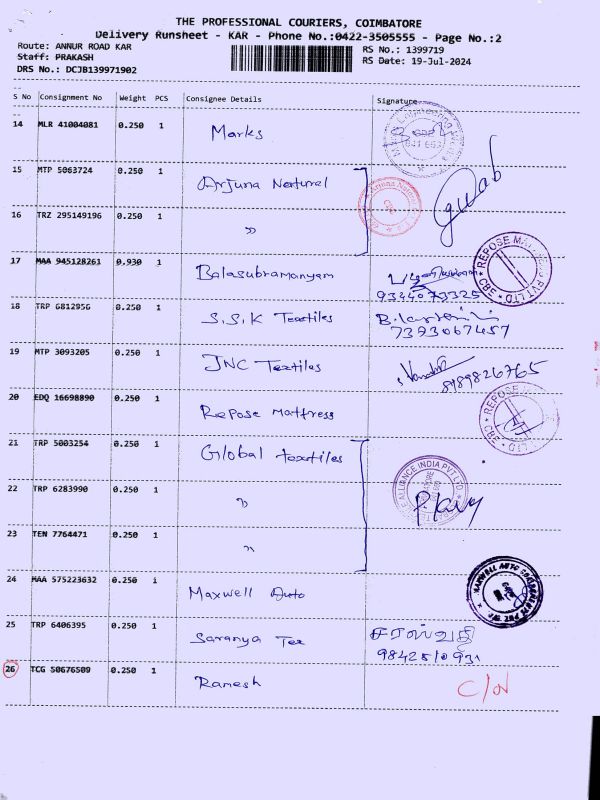 THE PROFESSIONAL COURIERS, COIMBATORE
Delivery Runsheet - KAR - Phone No.:0422-3505555 - Page No.:2
Route: ANNUR ROAD KAR RS No.: 1399719
Staff: PRAKASH RS Date: 19-Jul-2024
DRS No.: DCJB139971902
S No Consignment No Weight PCS Consignee Details Signature
14 MLR 41004081 0.250 1 Marks
15 MTP 5063724 0.250 1 Arjuna Natural
16 TRZ 295149196 0.250 1 "
17 MAA 945128261 0.930 1 Balasubramanyam
9344073325
18 TRP 6812956 0.250 1 S.S.K Textiles
7393067457
19 MTP 3093205 0.250 1 JNC Textiles
8189826765
20 EDQ 16698890 0.250 1 Repose Mattress
REPOSE
PVT LTD
21 TRP 5003254 0.250 1 Global textiles
ALLIANCE INDIA PVT LTD
22 TRP 6283990 0.250 1 "
23 TEN 7764471 0.250 1 "
24 MAA 575223632 0.250 1 Maxwell Auto
25 TRP 6406395 0.250 1 Saranya Tex சரஸ்வதி
9842510931
26 TCG 50676509 0.250 1 Ramesh C/N